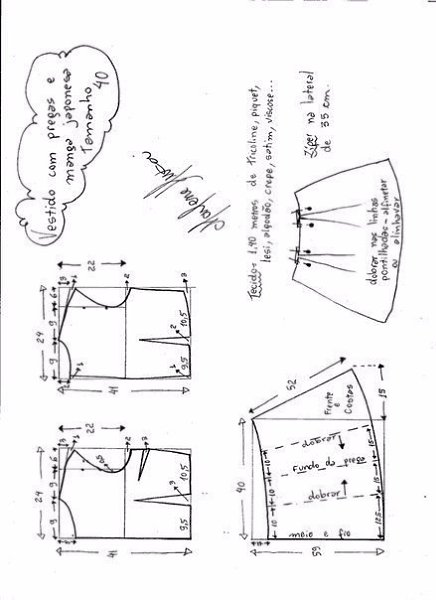 Vestido com pregas e
manga japonesa
Tamanho
40
Marlene Mukai
Tecido: 1,90 metros de Tricoline, piquet,
lesi, algodão, crepe, satim, viscose...
Zíper na lateral
de 35 cm.
dobrar nas linhas
pontilhadas - alfinetar
ou alinhavar
24
9
9
6
3
1
22
2
2
10,5
9,5
1
41
24
9
9
6
3
22
2
3
0,5
3
10,5
9,5
41
52
15
Frente
e
Costas
dobrar
10
15
Fundo da prega
10
15
dobrar
10
12,5
meio e fio
40
59